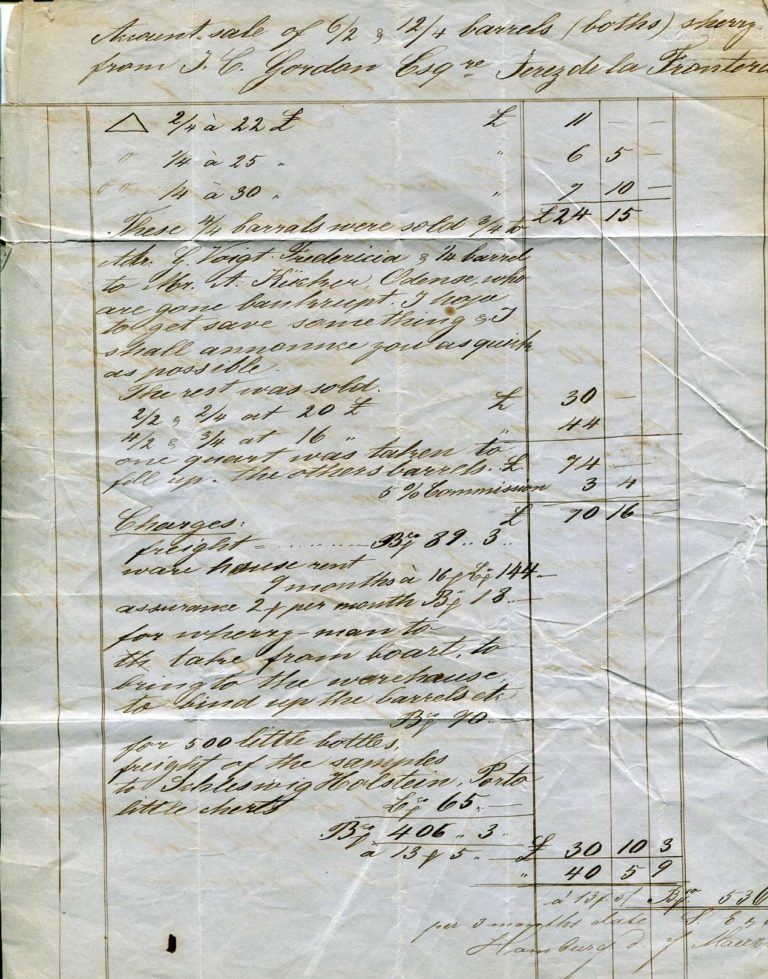 Amount sale of 6/2 & 12/4 barrels (boths) sherry
from J. C. Gordon Esqre Jerez de la Frontera
△ 2/4 à 22 £ £ 11 — —
o 1/4 à 25 " " 6 5 —
o o 1/4 à 30 " " 7 10 —
These 4/4 barrals were sold 3/4 to £24 15
Adr. C Voigt Fredericia & 1/4 barrel
to Mr. A. Kircher, Odense, who
are gone bankrupt. I hope
to get save something & I
shall annonuce you as quick
as possible.
The rest was sold.
2/2 & 2/4 at 20 £ £ 30 —
4/2 & 3/4 at 16 " " 44
one quart was taken to
fill up the others barrels. £ 74 —
5 % Commission 3 4
£ 70 16 —
Charges:
freight Bco 89 .. 3 ..
ware house rent
9 months à 16 Bco 144 —
assurame 2 per month Bco 18 —
for wherry-man to
th take from boart, to
bring to the warehause,
to bind up the barrels etc.
Bco 90 —
for 500 little bottles,
freight of the samples
to Schleswig Holstein, Porto
little cherts Bco 65 .. —
Bco 406 .. 3 ..
à 13 5 .. — £ 30 10 3
" 40 5 9
à 13 Bco 536
per 3 manths date
Hamburg d.